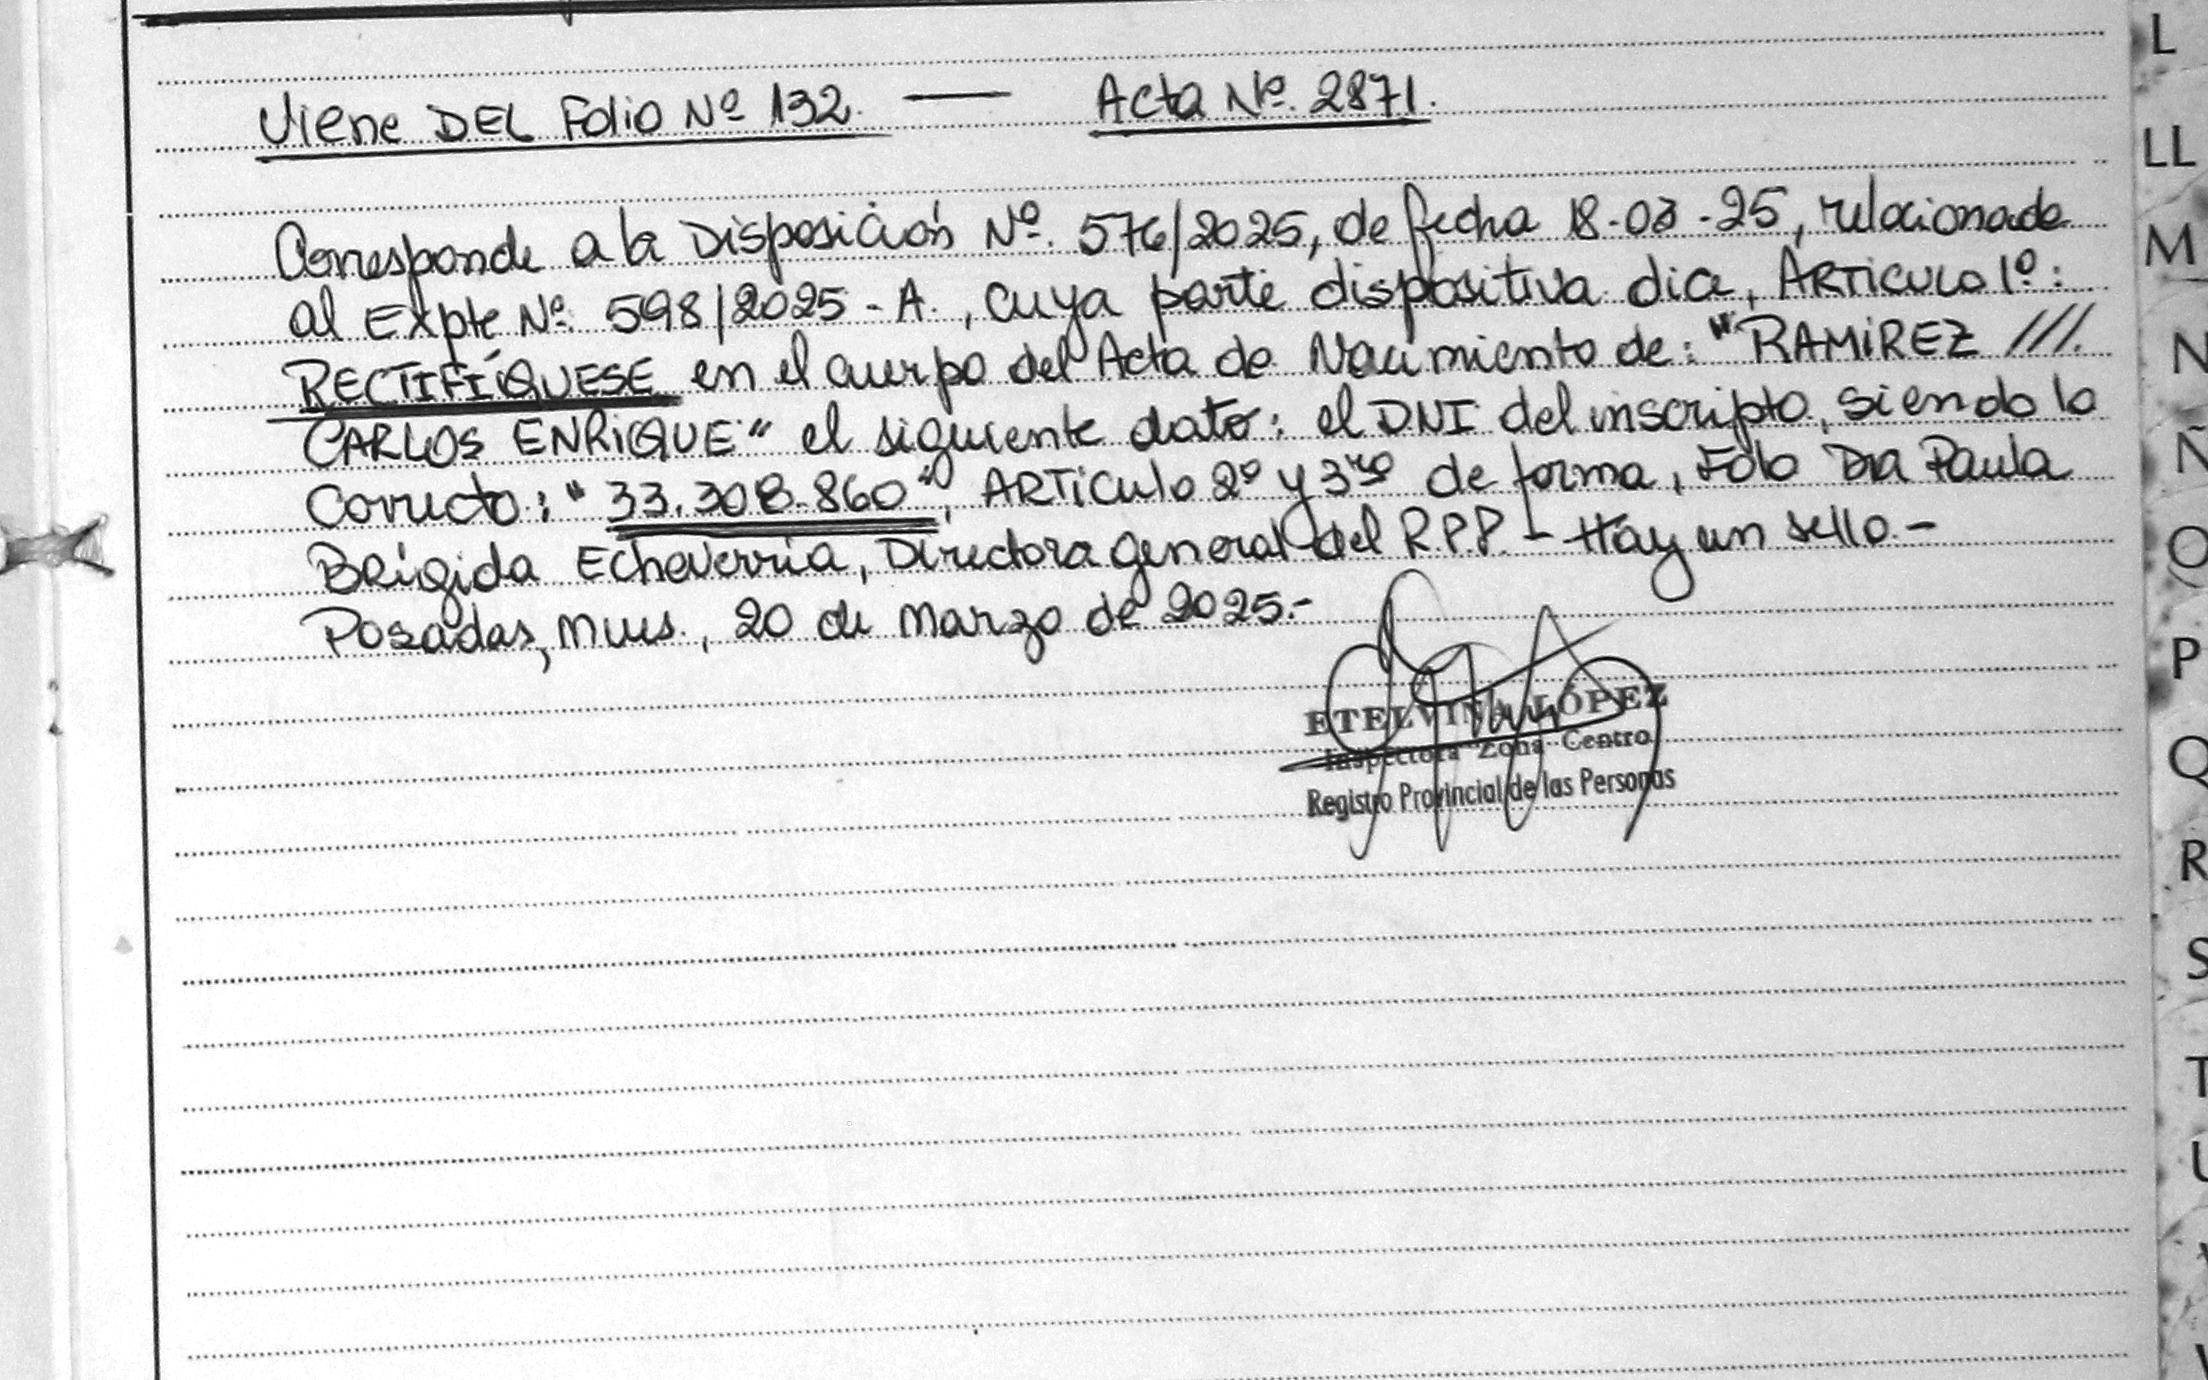 Viene DEL Folio Nº 132. — Acta Nº. 2871.
Corresponde a la Disposición Nº. 576/2025, de fecha 18-03-25, relacionado
al Expte Nº. 598/2025-A., cuya parte dispositiva dice, ARTICULO 1º:
RECTIFÍQUESE en el cuerpo del Acta de Nacimiento de: "RAMIREZ ///.
CARLOS ENRIQUE" el siguiente dato: el DNI del inscripto, siendo lo
Correcto: "33.308.860", ARTiculo 2º y 3ro de forma, Fdo Dra Paula
Brígida Echeverría, Directora general del R.P.P. - Hay un sello.-
Posadas, Mnes., 20 de Marzo de 2025.-
ETELVINA LÓPEZ
Inspectora Zona Centro
Registro Provincial de las Personas
L
LL
M
N
Ñ
O
P
Q
R
S
T
U